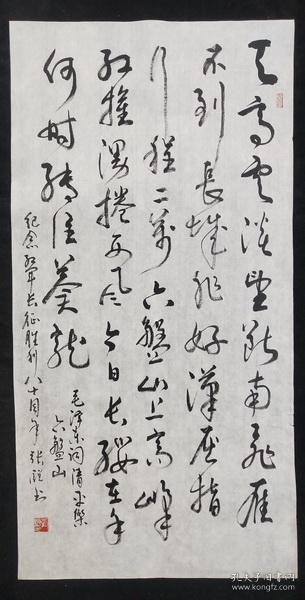 天高云淡望断南飞雁
不到長城非好漢屈指
行程二萬六盤山上高峰
红旗漫捲西风今日长缨在手
何时缚住蒼龍
毛泽东词清平樂
六盤山
纪念红军长征胜利八十周年 张
书
孔夫子旧书网
www.kongfz.com